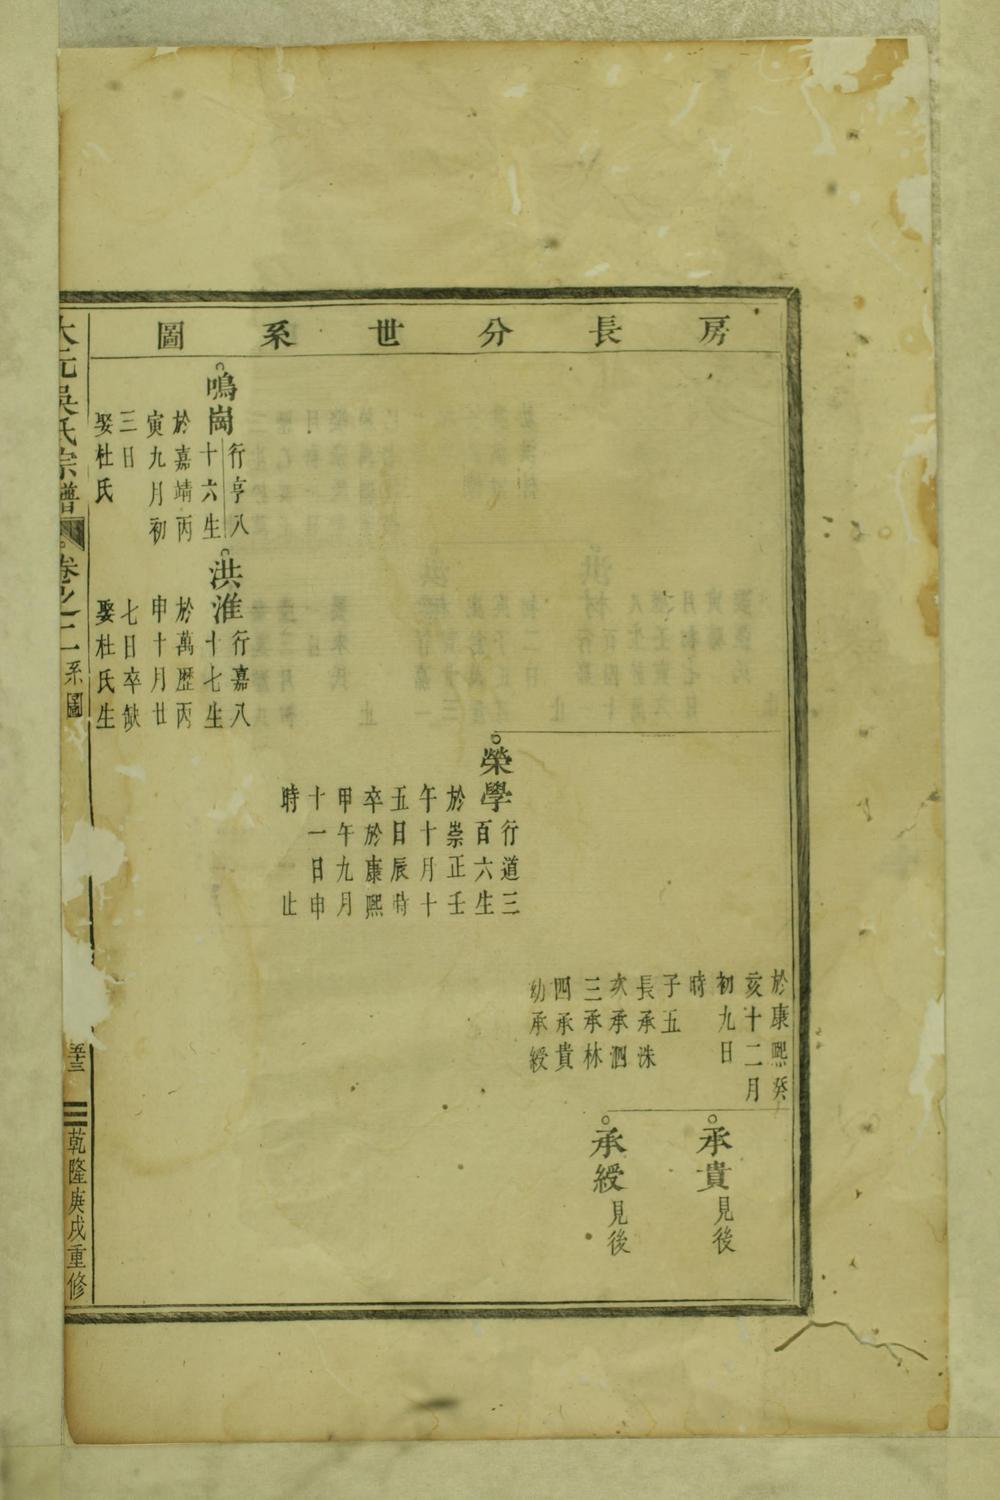 房長分世系圖
於康熙癸
亥十二月
初九日
時
子五
長承洙
次承泗
三承林
四承貴
幼承綬
承貴見後
承綬見後
榮學
行道三
百六生
於崇正壬
午十月十
五日辰時
卒於康熙
甲午九月
十一日申
時 止
鳴崗
行亨八
十六生
於嘉靖丙
寅九月初
三日
娶杜氏
洪淮
行嘉八
十七生
於萬歷丙
申十月廿
七日卒缺
娶杜氏生
大元吳氏宗譜
卷之二 系圖
五十三
乾隆庚戌重修